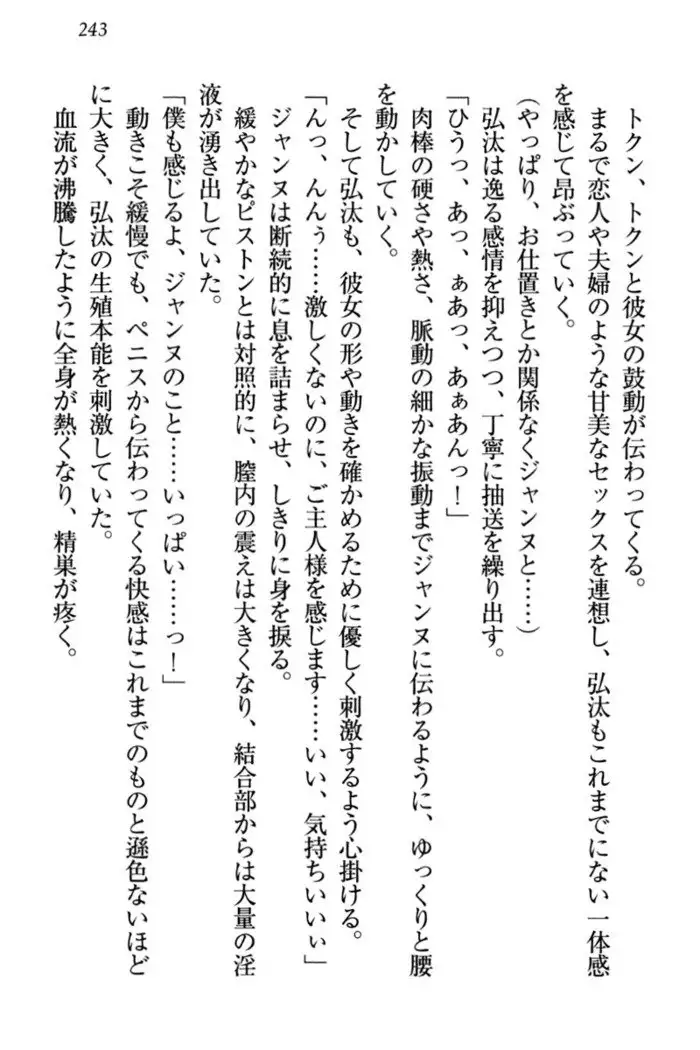 243
トクン、トクンと彼女の鼓動が伝わってくる。
まるで恋人や夫婦のような甘美なセックスを連想し、弘汰もこれまでにない一体感
を感じて昂ぶっていく。
(やっぱり、お仕置きとか関係なくジャンヌと……)
弘汰は逸る感情を抑えつつ、丁寧に抽送を繰り出す。
「ひうっ、あっ、ぁあっ、あぁあんっ！」
肉棒の硬さや熱さ、脈動の細かな振動までジャンヌに伝わるように、ゆっくりと腰
を動かしていく。
そして弘汰も、彼女の形や動きを確かめるために優しく刺激するよう心掛ける。
「んっ、んんぅ……激しくないのに、ご主人様を感じます……いい、気持ちいいぃ」
ジャンヌは断続的に息を詰まらせ、しきりに身を捩る。
緩やかなピストンとは対照的に、膣内の震えは大きくなり、結合部からは大量の淫
液が湧き出していた。
「僕も感じるよ、ジャンヌのこと……いっぱい……っ！」
動きこそ緩慢でも、ペニスから伝わってくる快感はこれまでのものと遜色ないほど
に大きく、弘汰の生殖本能を刺激していた。
血流が沸騰したように全身が熱くなり、精巣が疼く。